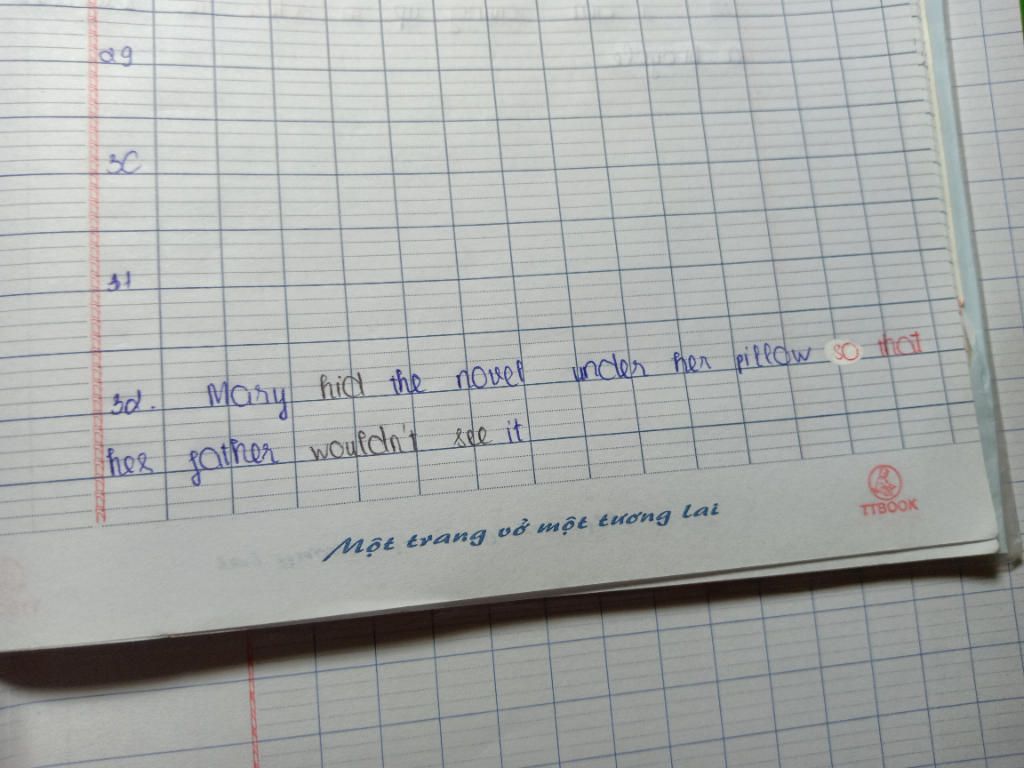 29
30
31
32. Mary hid the novel under her pillow so that
her father wouldn't see it
Một trang vở một tương lai
TTBOOK